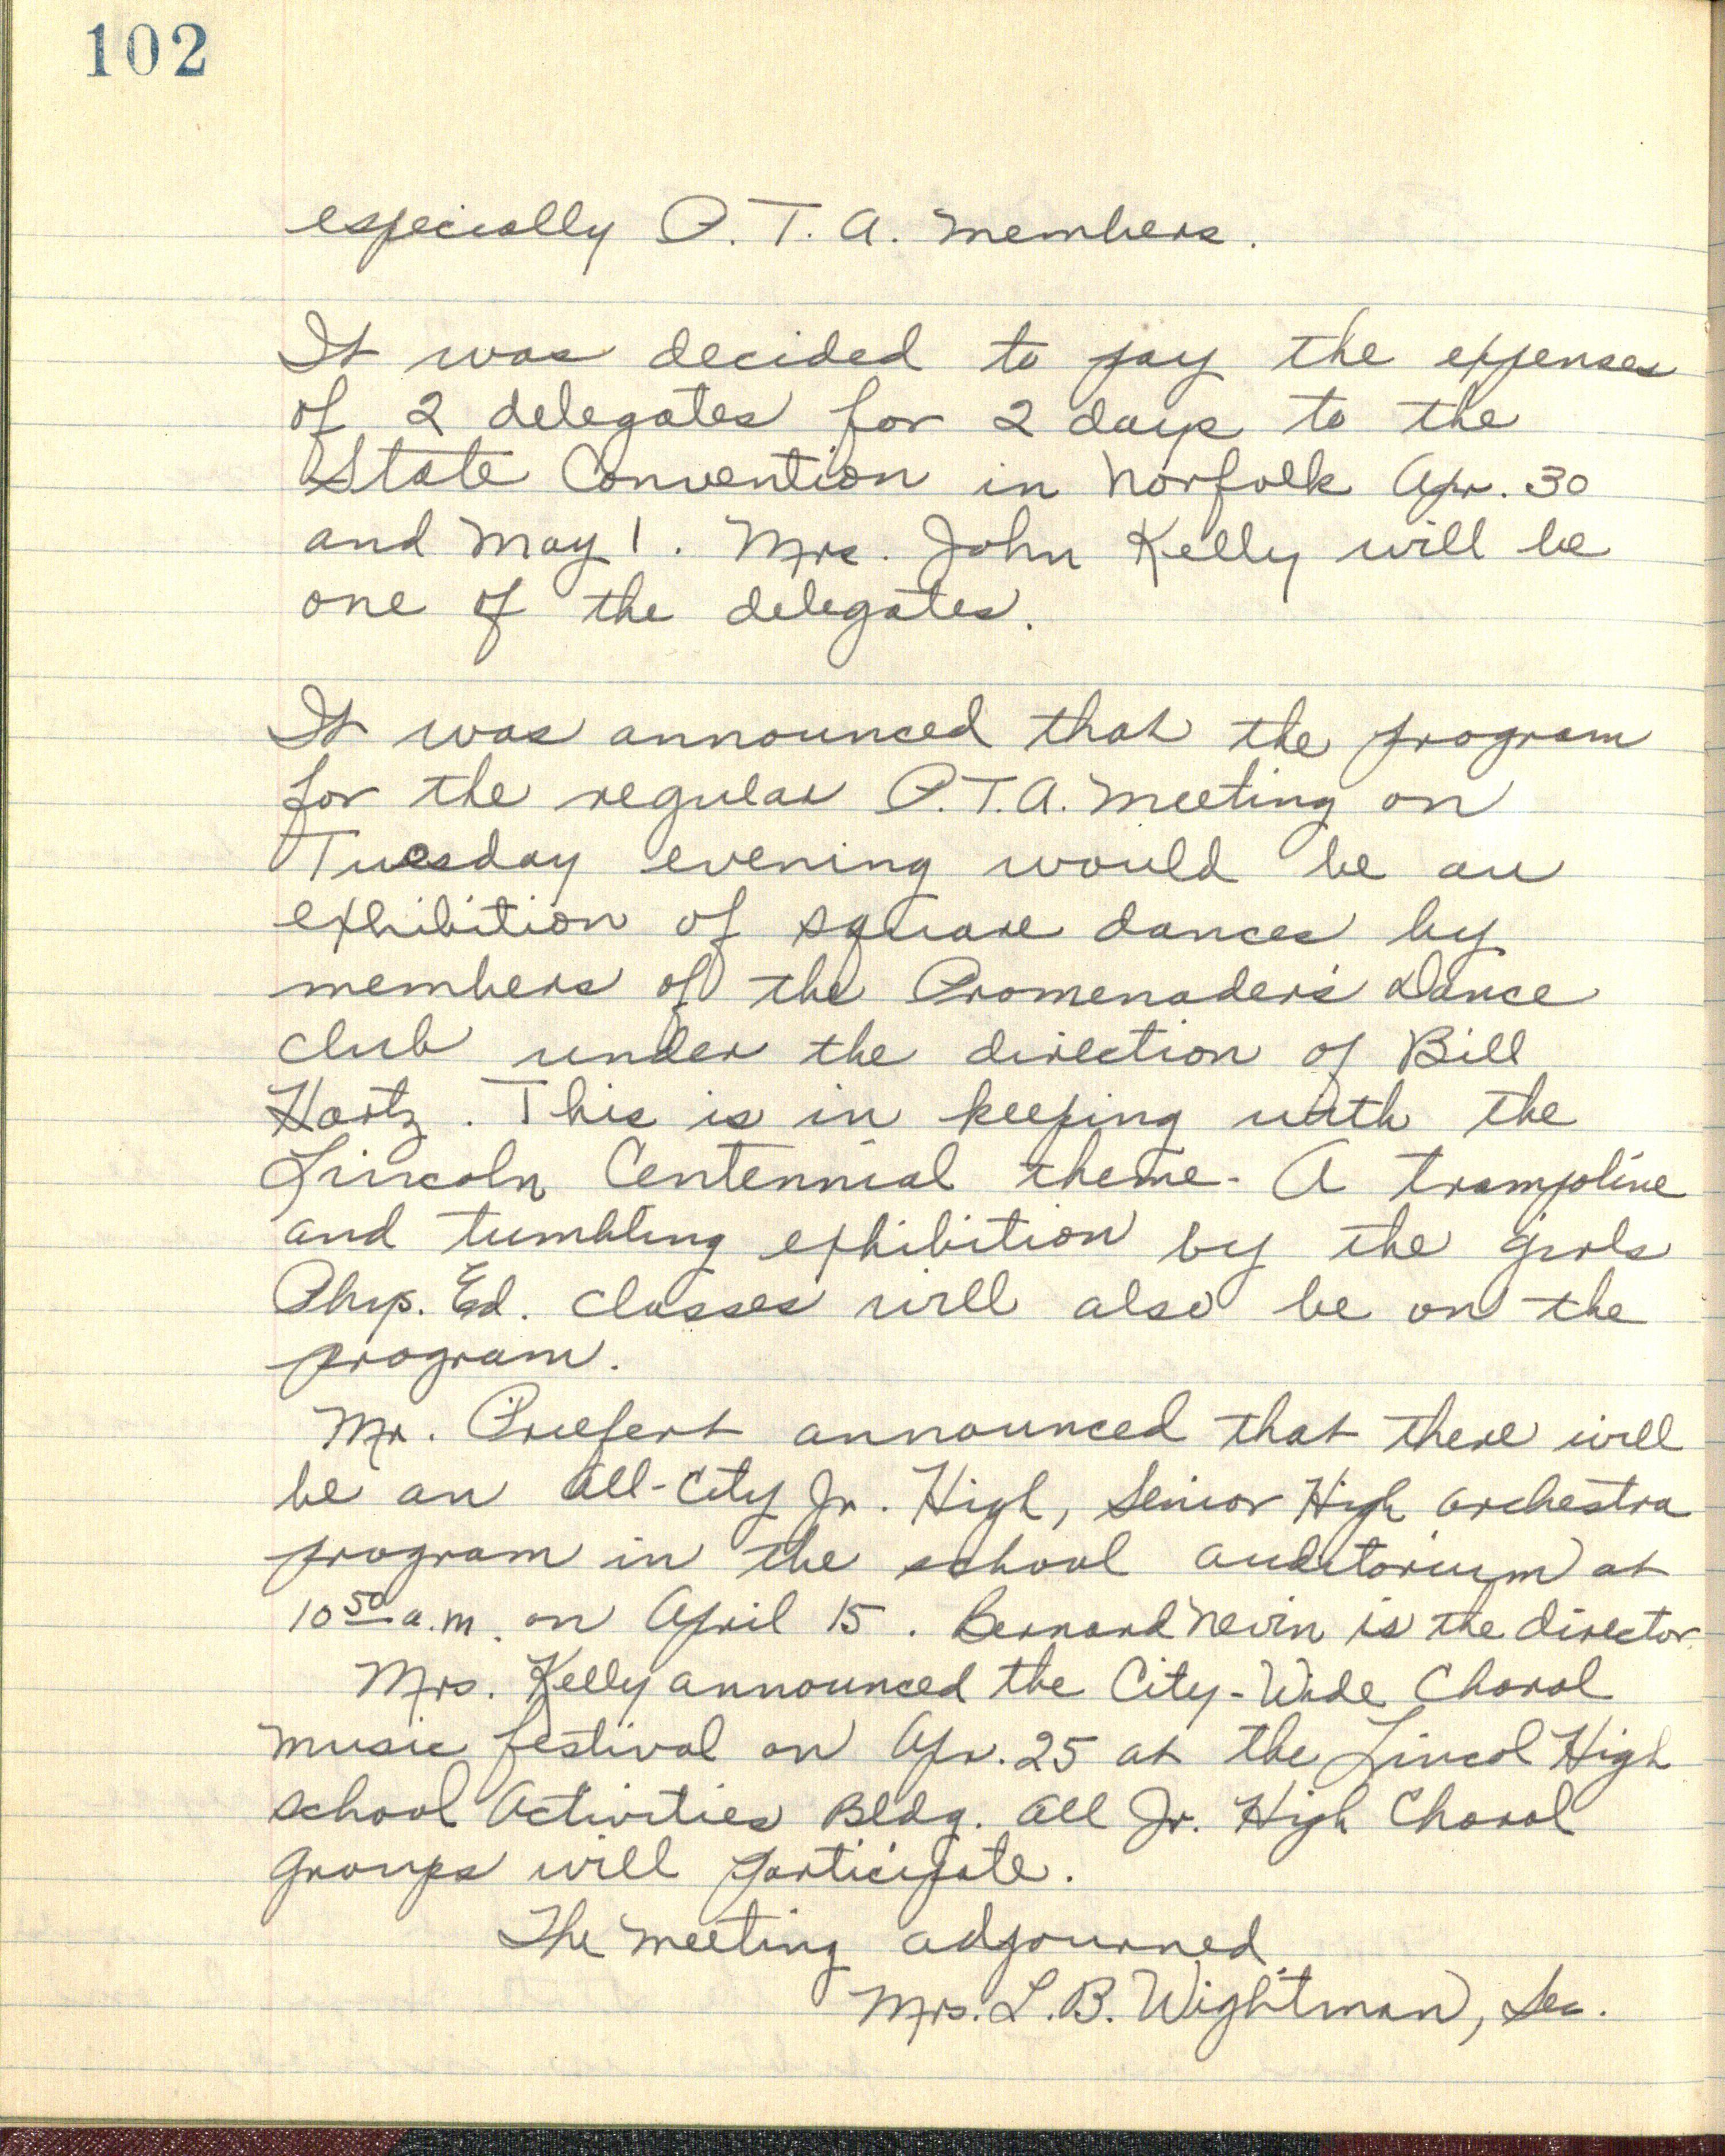 102
especially P. T. A. members.
It was decided to pay the expenses
of 2 delegates for 2 days to the
State Convention in Norfolk Apr. 30
and May 1. Mrs. John Kelly will be
one of the delegates.
It was announced that the program
for the regular P.T.A. meeting on
Tuesday evening would be an
exhibition of square dances by
members of the Promenader's Dance
club under the direction of Bill
Hartz. This is in keeping with the
Lincoln Centennial theme. A trampoline
and tumbling exhibition by the girls
Phys. Ed. classes will also be on the
program.
Mr. Pruefert announced that there will
be an all-City Jr. High, Senior High orchestra
program in the school auditorium at
10 50 a.m. on April 15. Bernard Nevin is the director.
Mrs. Kelly announced the City-Wide Choral
music festival on Apr. 25 at the Lincol High
school Activities Bldg. All Jr. High Choral
groups will participate.
The meeting adjourned
Mrs. L. B. Wightman, Sec.